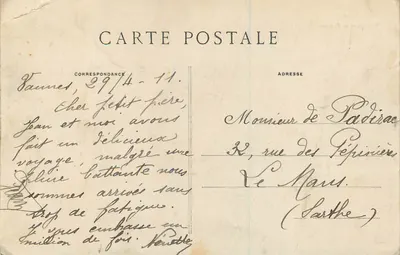 CARTE POSTALE
CORRESPONDANCE
Vannes, 29/4-11.
Cher petit père,
Jean et moi avons
fait un délicieux
voyage, malgré une
pluie battante nous
sommes arrivés sans
trop de fatigue.
embrasse un
million de fois.
ADRESSE
Monsieur de Padirac
32, rue des Pépinières
Le Mans
(Sarthe)